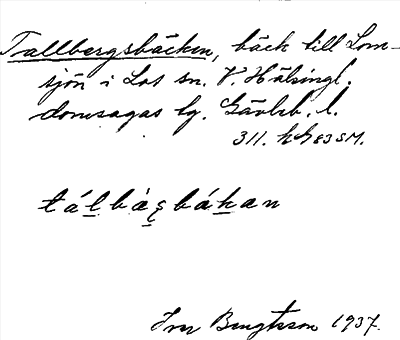 Tallbergsbäcken, bäck till Lom-
sjön i Los sn. V. Hälsingl.
domsagas tg. Gävleb. l.
311. hG83SM.
tálbàςbákan
Ivar Bengtsson 1937.